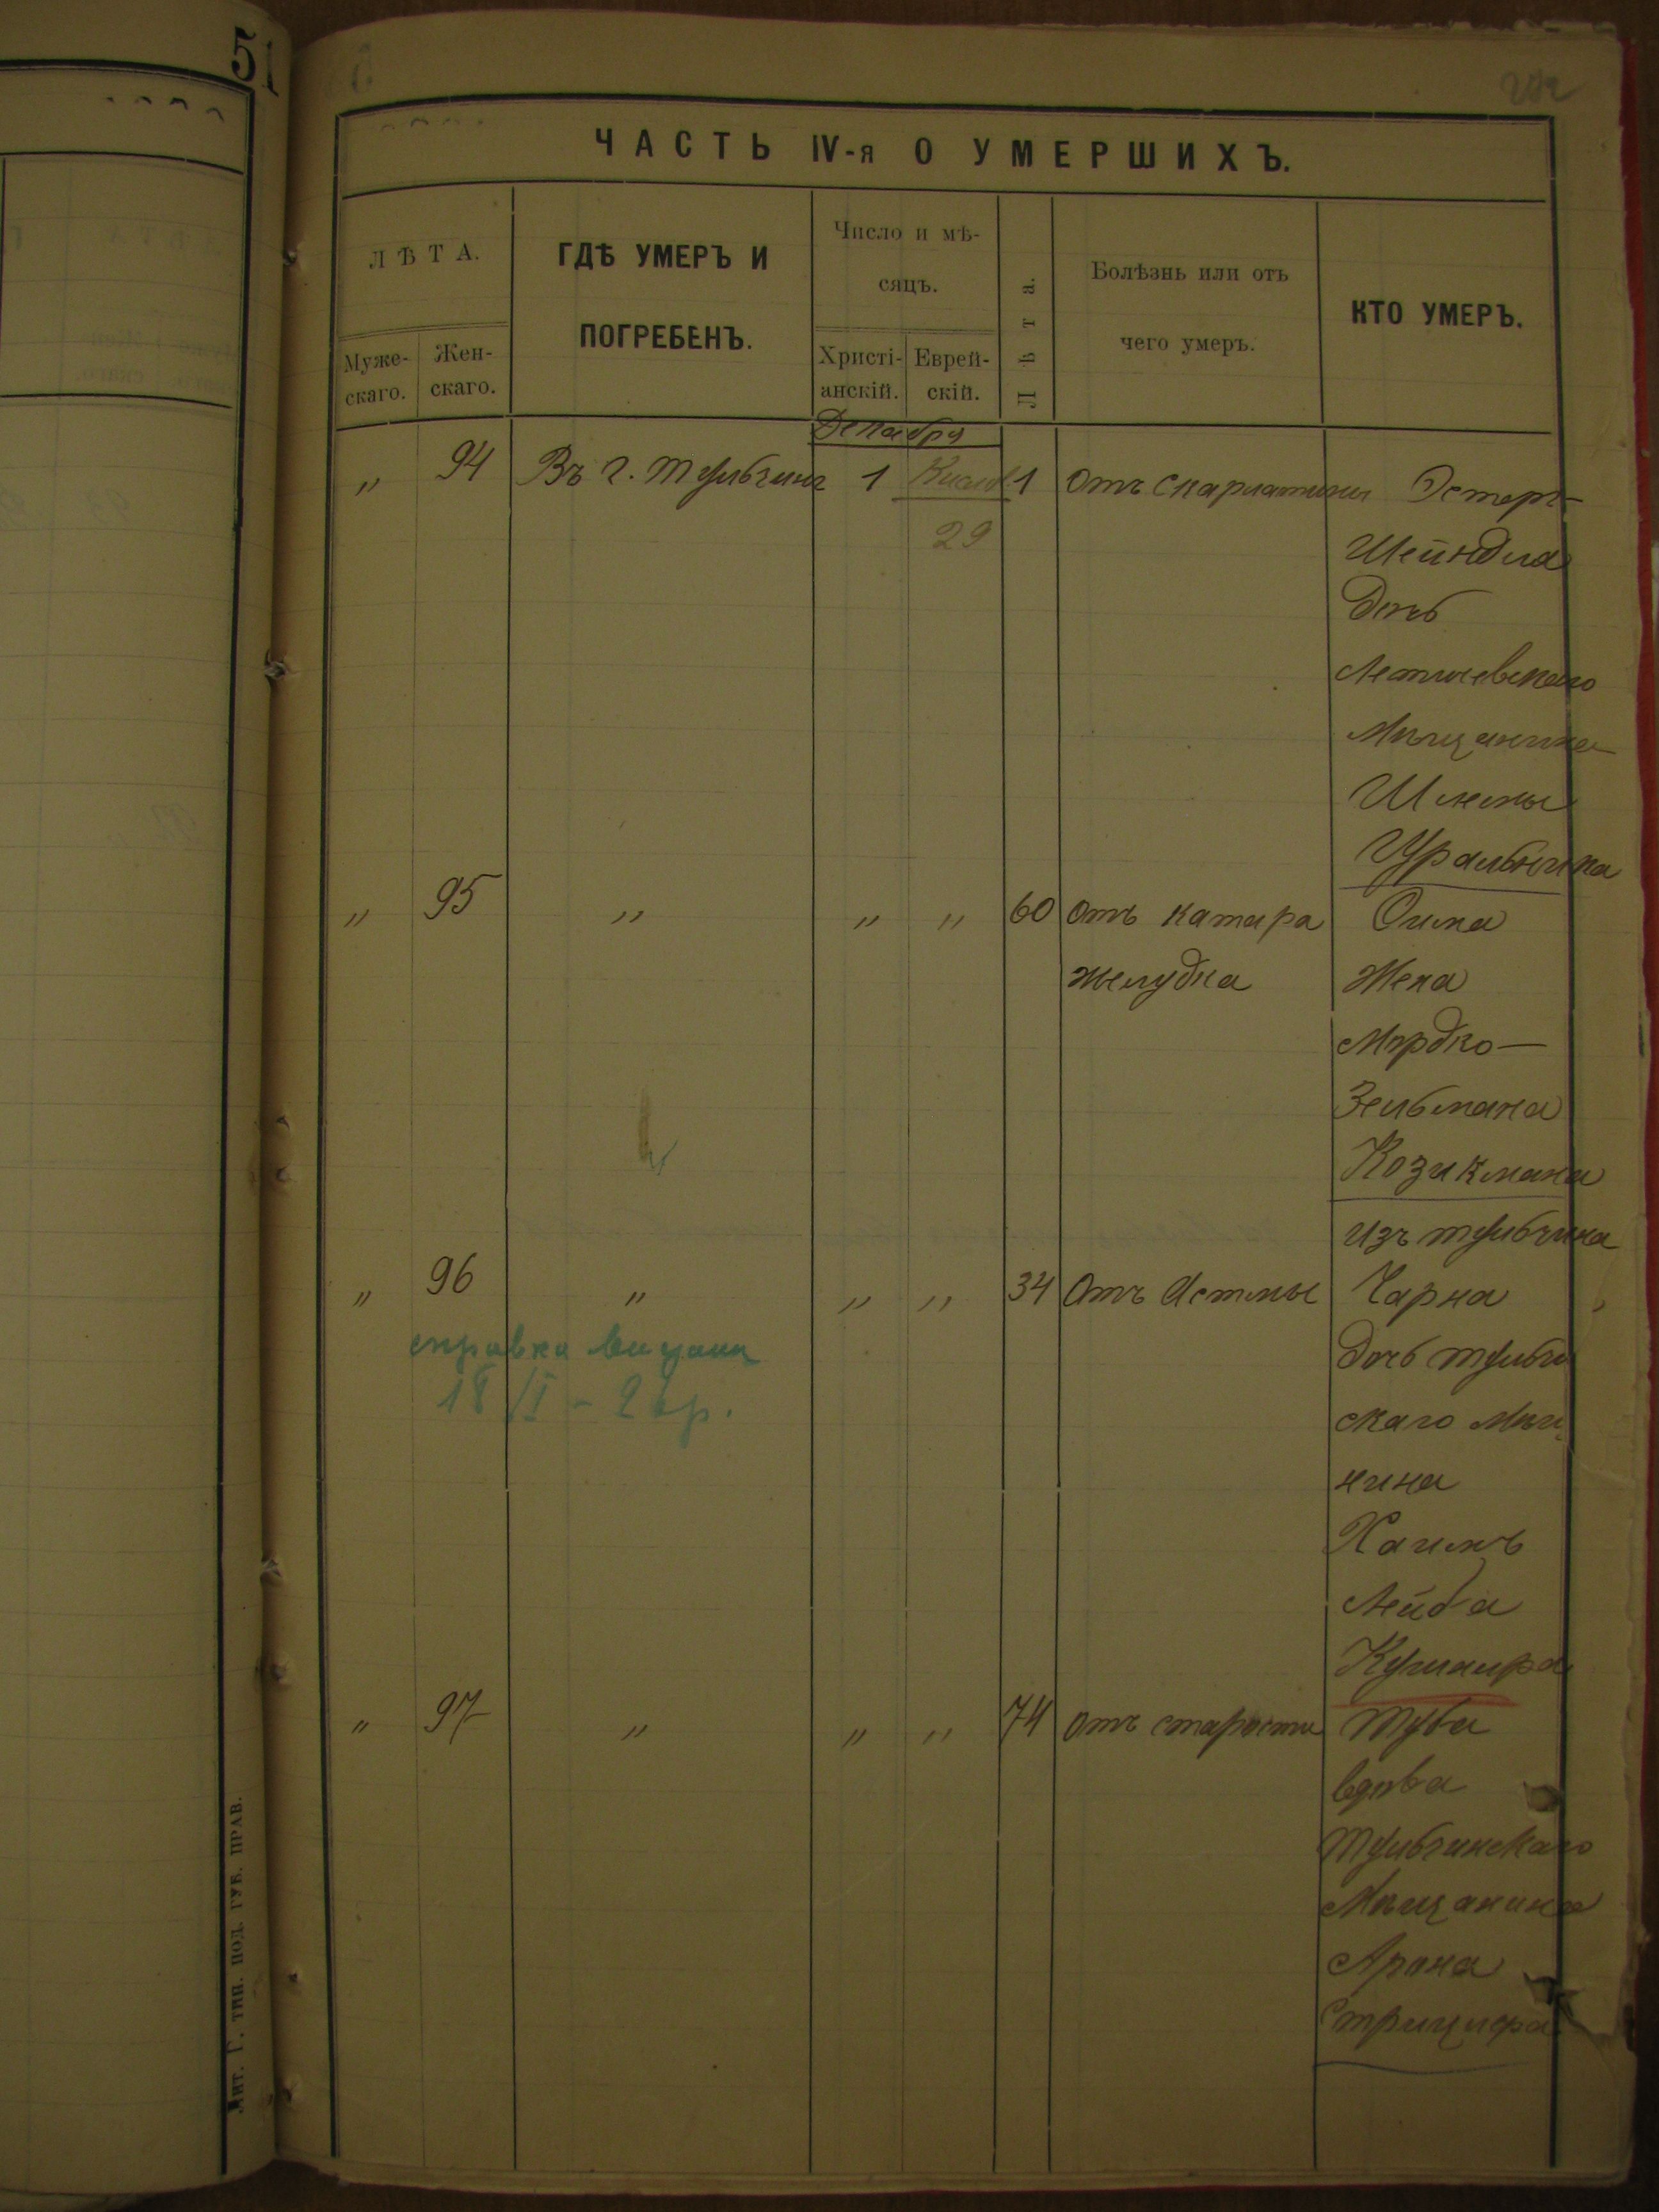 51
ЧАСТЬ IV-я О УМЕРШИХЪ.
ЛѢТА.
Муже-
скаго.
Жен-
скаго.
ГДѢ УМЕРЪ И
ПОГРЕБЕНЪ.
Число и мѣ-
сяцъ.
Христі-
анскій.
Еврей-
скій.
Лѣта.
Болѣзнь или отъ
чего умеръ.
КТО УМЕРЪ.
Декабря
" 94 Въ г. Тульчинѣ 1 Кисл. 1 отъ скарлатины Эстеръ-
29
Шейндля
дочь
Летичевскаго
Мѣщанина
Шлемы
Уральника
" 95 " " " 60 отъ катара
желудка
Сима
Жена
Мордко-
Зельмана
Козикмана
изъ Тульчина
" 96 " " " 34 отъ Астмы Чарна
дочь Тульчи
скаго Мѣщ
нина
Хаимъ
Лейба
справка выдана
18/I - 26 р.
" 97 " " " 74 отъ старости Туба
вдова
Тульчинскаго
Мѣщанина
Арона
Лит. Г. тип. Под. Губ. Прав.